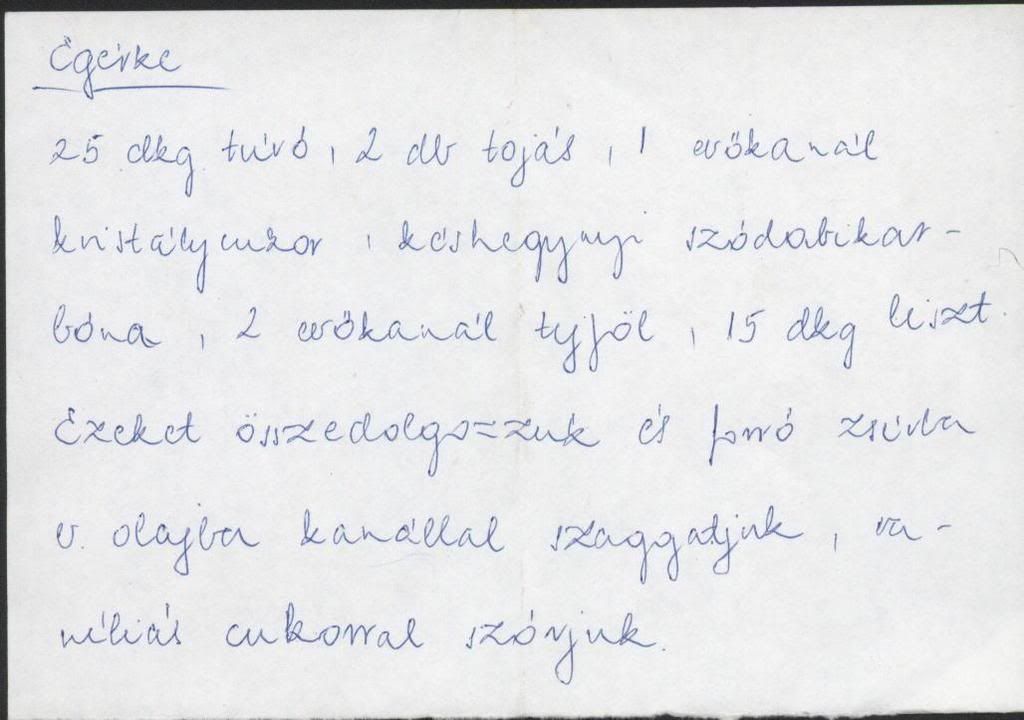 Egérke
25 dkg túró, 2 db tojás, 1 evőkanál
kristálycukor, késhegynyi szódabikar-
bóna, 2 evőkanál tejföl, 15 dkg liszt.
Ezeket összedolgozzuk és forró zsírba
v. olajba kanállal szaggatjuk, va-
níliás cukorral szórjuk.